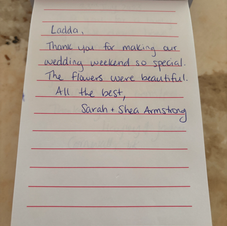 Ladda,
Thank you for making our
wedding weekend so special.
The flowers were beautiful.
All the best,
Sarah + Shea Armstrong